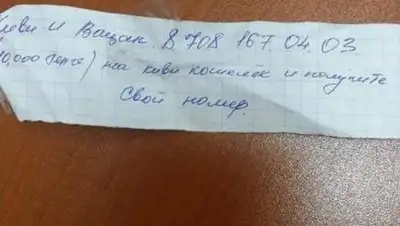 и Вацап 8 708 167 04 03
0,000 тенге) на киви кошелёк и получите
свой номер.